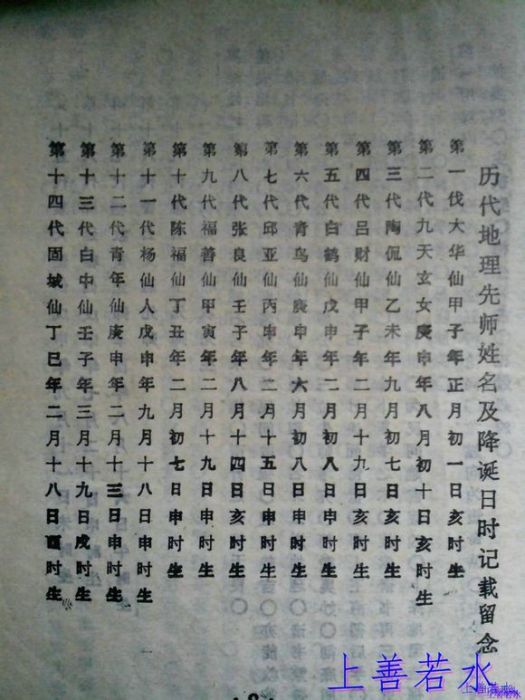 历代地理先师姓名及降诞日时记载留念
第一伐大华仙甲子年正月初一日亥时生
第二代九天玄女庚申年八月初十日亥时生
第三代陶侃仙乙未年九月初七日亥时生
第四代吕财仙甲子年二月十九日亥时生
第五代白鹤仙戊申年二月初八日亥时生
第六代青鸟仙庚申年六月初八日申时生
第七代邱亚仙丙申年二月十五日申时生
第八代张良仙壬子年八月十四日亥时生
第九代福善仙甲寅年二月十九日申时生
第十代陈福仙丁丑年二月初七日申时生
第十一代杨仙人戊申年九月十八日申时生
第十二代青年仙庚申年二月十三日申时生
第十三代白中仙壬子年三月十九日戌时生
第十四代固城仙丁巳年二月十八日酉时生
上善若水
上善若水